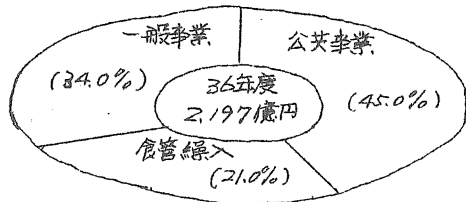 一般事業
(34.0%)
公共事業
(45.0%)
36年度
2,197億円
食管繰入
(21.0%)